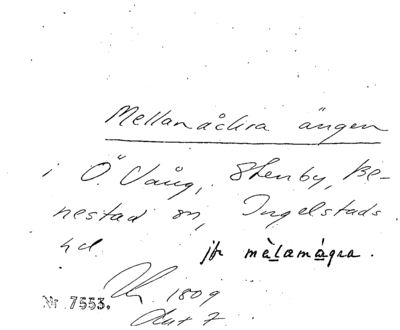 Mellanåkra ängen
i Ö. Vång, Stenby, Be-
nestad sn, Ingelstads
hd. jfr mèlamágra.
1809
Nr 7553. Akt 7